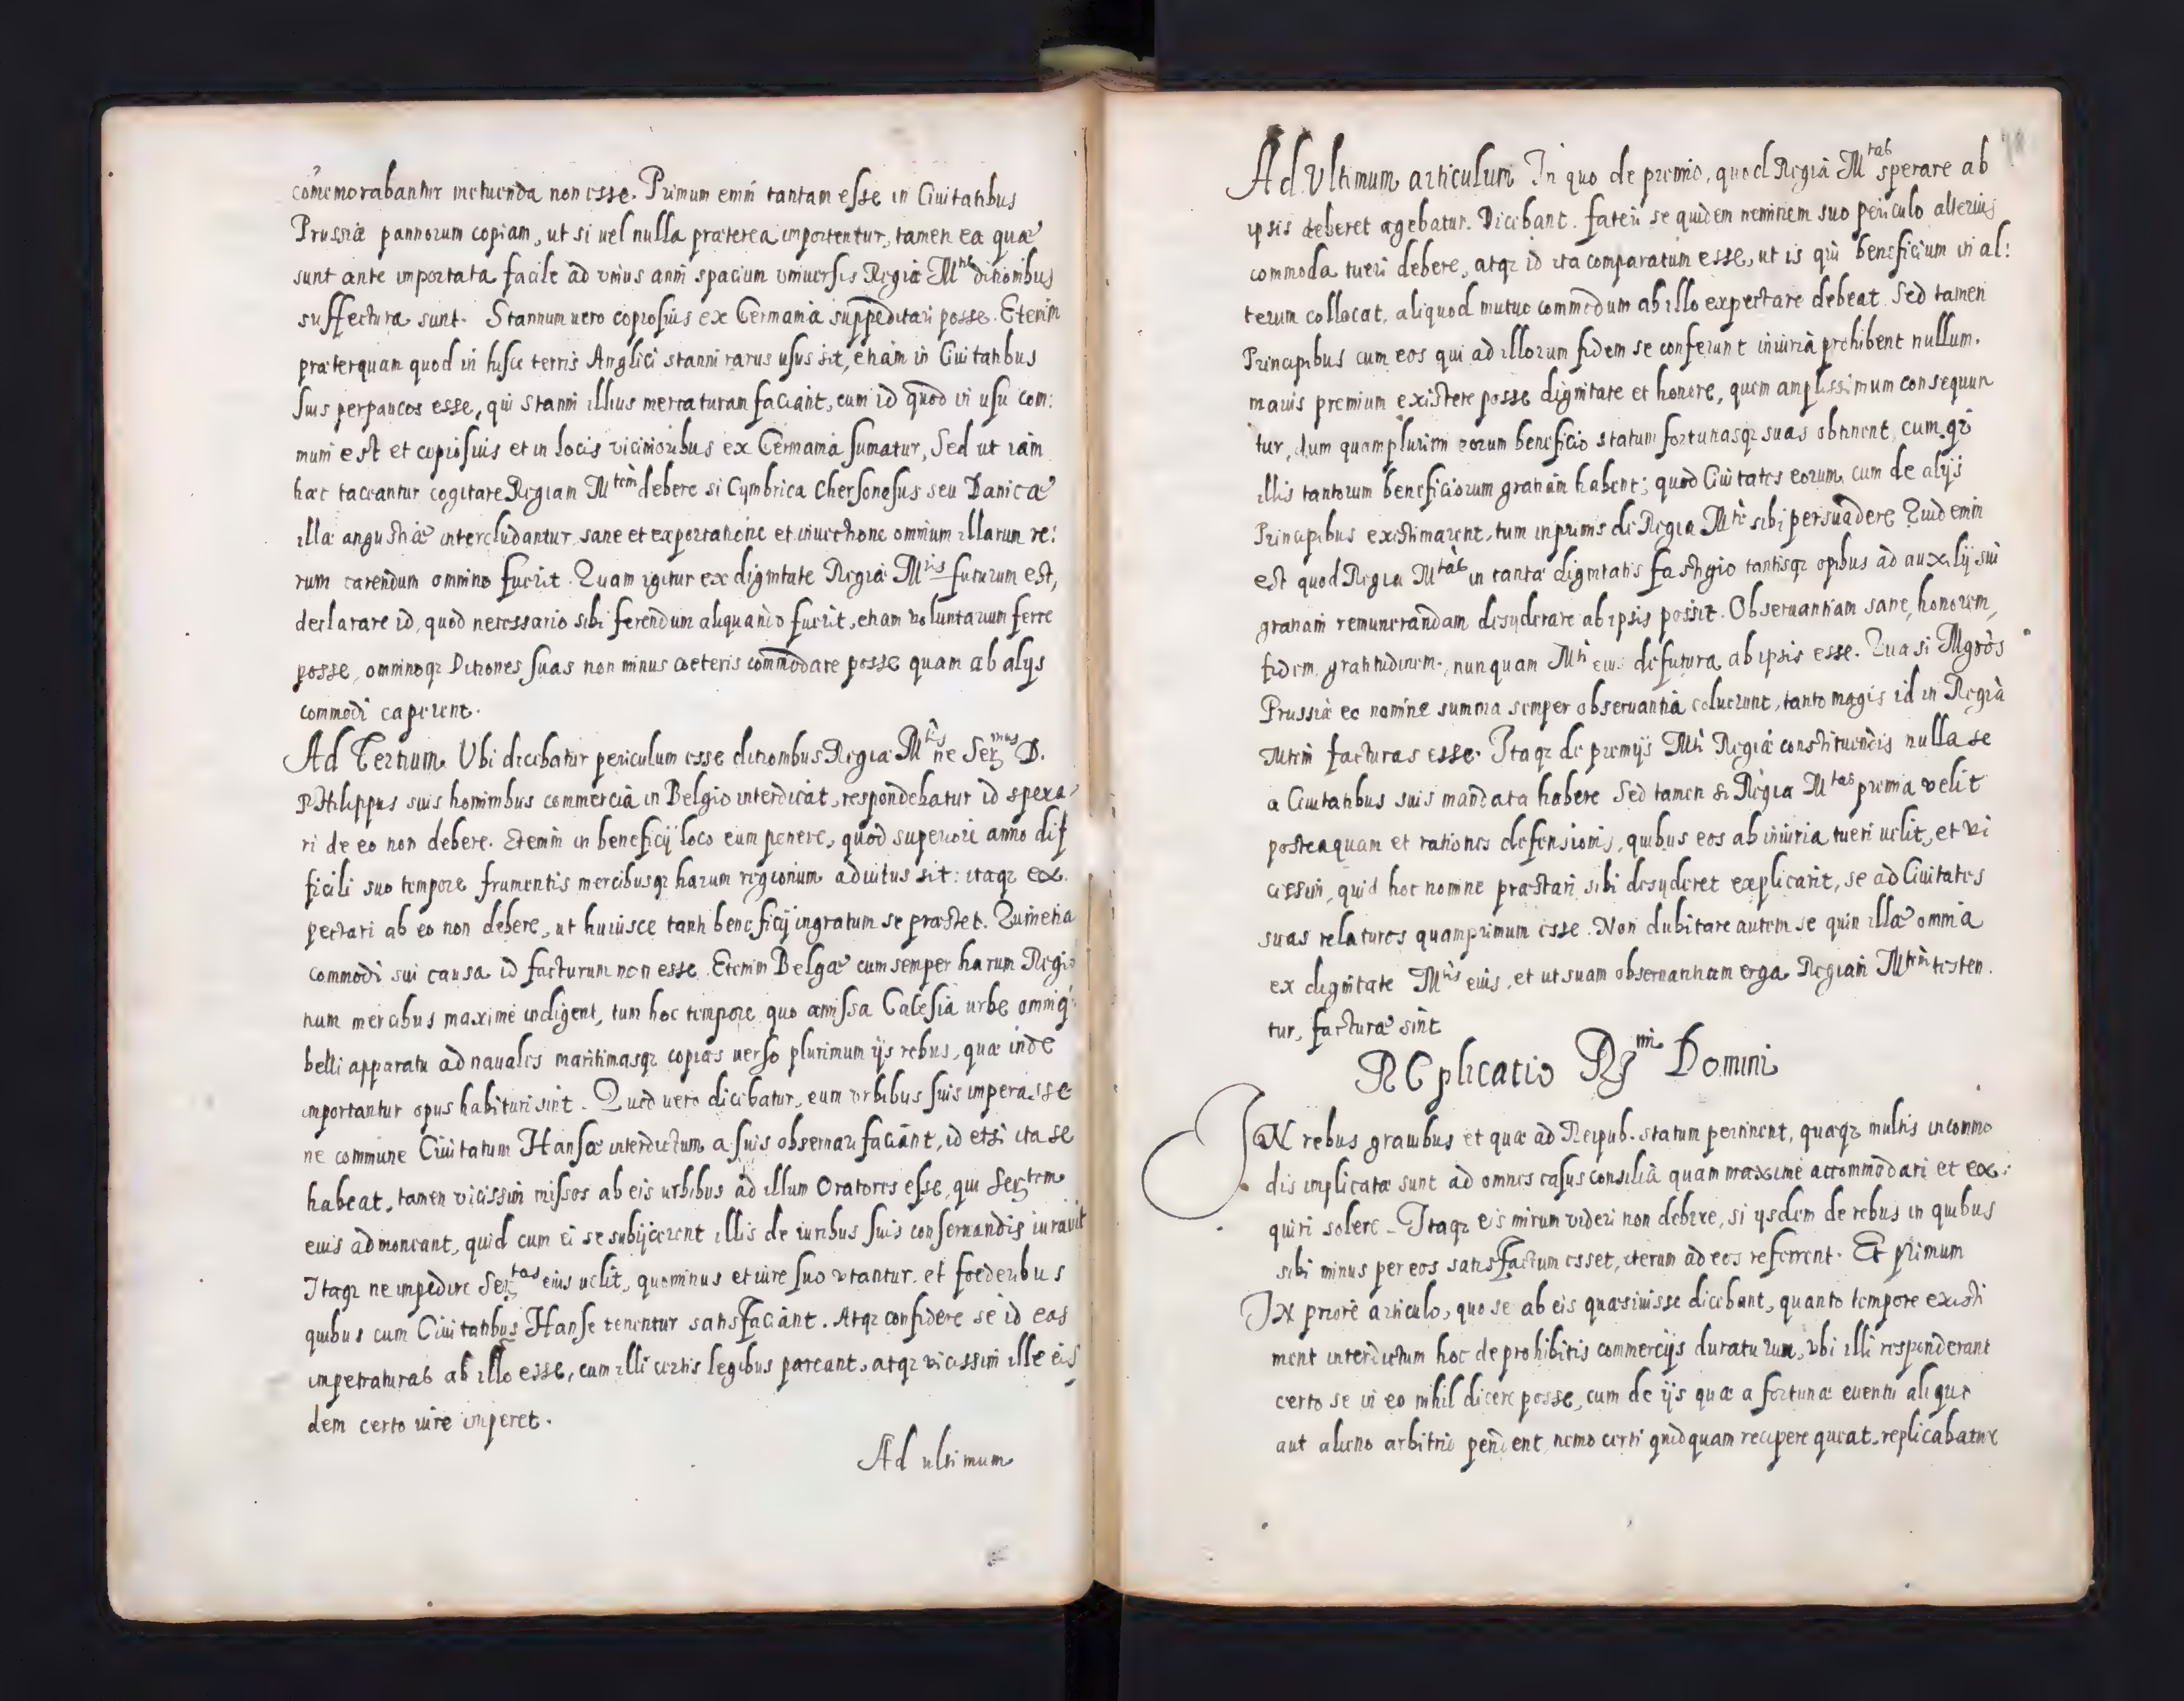 com̃emorabantur metuenda non esse. Primum enim tantam esse in Ciuitatibus
Prussiæ pannorum copiam, ut si uel nulla præterea importentur, tamen ea quæ
sunt ante importata facile ad vnius anni spacium vniuersis Regiæ Mtis ditionibus
suffectura sunt. Stannum uero copiosius ex Germania suppeditari posse. Etenim
præterquam quod in hisce terris Anglici stanni rarus usus sit, etiam in Ciuitatibus
suis perpaucos esse, qui stanni illius mercaturam faciant, cum id quod in usu com:
muni est et copiosius et in locis vicinioribus ex Germania sumatur, Sed ut iam
hæc taceantur cogitare Regiam Mtem debere si Cymbrica Chersonesus seu Danicæ
illæ angustiæ intercludantur sane et exportatione et inuectione omnium illarum re:
rum carendum omnino fuerit. Quam igitur ex dignitate Regiæ Mtis futurum est,
declarare id, quod necessario sibi ferendum aliquando fuerit, etiam voluntarium ferre
posse, omninoqz Ditiones suas non minus cæteris commodare posse quam ab alijs
commodi caperent.
Ad Tertium. Vbi dicebatur periculum esse ditionibus Regiæ Mtis ne Serzmus D.
Philippus suis hominibus commercia in Belgio interdicat, respondebatur id spera,
ri de eo non debere. Etenim in beneficij loco eum ponere, quod superiori anno dif
ficili suo tempore frumentis mercibusqz harum regionum adiutus sit: itaqz ex
pectari ab eo non debere, ut huiusce tanti beneficij ingratum se præstet. Quin etia
commodi sui causa id facturum non esse. Etenim Belgæ cum semper harum Regio
num mercibus maxime indigent, tum hoc tempore quo amissa Calesia urbe omniq
belli apparatu ad naualis maritimasqz copias uerso plurimum ijs rebus, quæ inde
importantur opus habituri sint. Quod uero dicebatur, eum vrbibus suis imperasse
ne commune Ciuitatum Hansæ interdictum a suis obseruari faciant, id etsi ita se
habeat, tamen vicissim missos ab eis urbibus ad illum Oratores esse, qui Serztem
eius admoneant, quid cum ei se subijcerent illis de iuribus suis conseruandis iurauit
Itaqz ne impedire Serztas eius uelit, quominus et iure suo vtantur. et foederibus
quibus cum Ciuitatibus Hanse tenentur satisfaciant. Atqz confidere se id eas
impetraturas ab illo esse, cum illi certis legibus pareant, atqz vicissim ille eis
dem certo iure imperet.
Ad ultimum
Ad Vltimum articulum In quo de premio, quod Regia Mtas sperare ab
ipsis deberet agebatur. Dicebant. fateri se quidem neminem suo periculo alterius
commoda tueri debere, atqz id ita comparatum esse, ut is qui beneficium in al:
terum collocat, aliquod mutuo commodum ab illo expectare debeat. Sed tamen
Principibus cum eos qui ad illorum fidem se conferunt iniuria prohibent nullum
maius premium existere posse dignitate et honore, quem amplissimum consequun
tur, dum quamplurimi eorum beneficio statum fortunasqz suas obtinent, cumqz
illis tantorum beneficiorum gratiam habent; quod Ciuitates eorum cum de alijs
Principibus existimarent, tum inprimis de Regia Mte sibi persuadere Quid enim
est quod Regia Mtas in tanta dignitatis fastigio tantisqz opibus ad auxilij sui
gratiam remunerandam desyderare ab ipsis possit. Obseruantiam sane, honorem,
fidem, gratitudinem, nunquam Mti eius defutura ab ipsis esse. Qua si Mgros
Prussiæ eo nomine summa semper obseruantia coluerunt, tanto magis id in Regia
Mtem facturas esse. Itaqz de premijs Mti Regiæ constituendis nulla se
a Ciuitatibus suis mandata habere Sed tamen si Regia Mtas premia velit
posteaquam et rationes defensionis, quibus eos ab iniuria tueri uelit, et vi
cissim, quid hoc nomine præstari sibi desyderet explicarit, se ad Ciuitates
suas relaturos quamprimum esse. Non dubitare autem se quin illæ omnia
ex dignitate Mtis eius, et ut suam obseruantiam erga Regiam Mtem testen
tur, facturæ sint
REplicatio Rzmi Domini
IN rebus grauibus et quæ ad Reipub. statum pertinent, quæqz multis incommo
dis implicatæ sunt ad omnes casus consilia quam maxime accommodari et ex:
quiri solere. Itaqz eis mirum videri non debere, si ijsdem de rebus in quibus
sibi minus per eos satisfactum esset, iterum ad eos referrent. Et primum
IN priore articulo, quo se ab eis quæsiuisse dicebant, quanto tempore existi
ment interdictum hoc de prohibitis commercijs duraturum, vbi illi responderant
certo se in eo nihil dicere posse, cum de ijs quæ a fortunæ euentu aliquo
aut alieno arbitrio pendent, nemo certi quidquam recipere queat, replicabatur